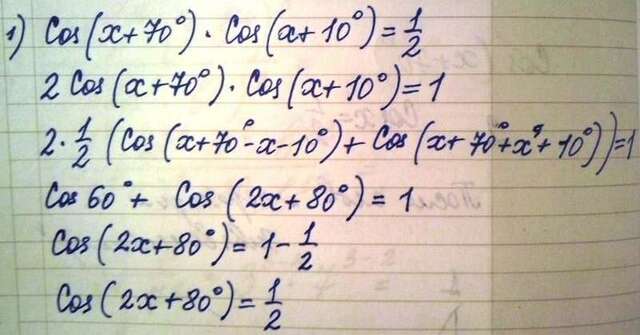 1) Cos(x+70°)·Cos(x+10°)=1/2
2Cos(x+70°)·Cos(x+10°)=1
2·1/2(Cos(x+70°-x-10°)+Cos(x+70°+x°+10°))=1
Cos60°+Cos(2x+80°)=1
Cos(2x+80°)=1-1/2
Cos(2x+80°)=1/2